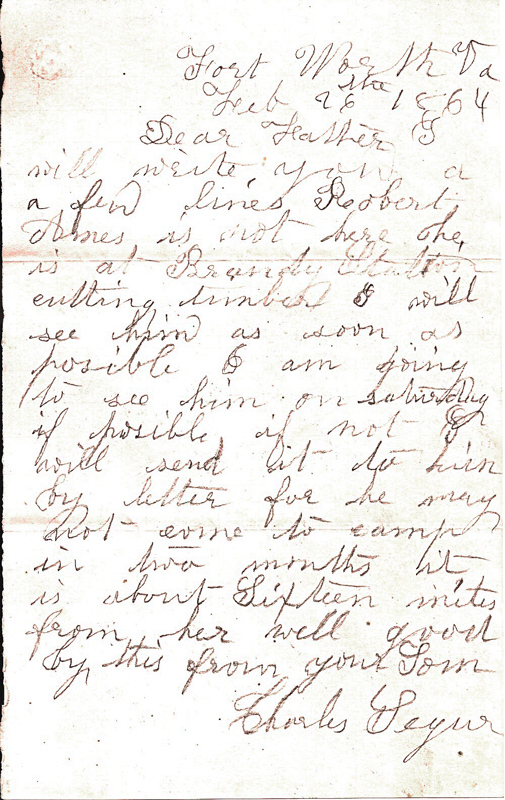 Fort Worth Va
Feb 26th 1864
Dear Father I
will write you a
a few lines Robert
Ames is not here he
is at Brandy Station
cutting timber I will
see him as soon as
posible I am going
to see him on saturday
if posible if not I
will send it to him
by letter for he may
not come to camp
in two months it
is about Sixteen miles
from her well good
by this from your Son
Charles Segur